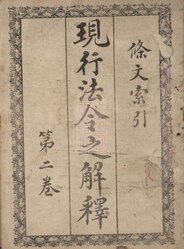 條文索引
現行法令之解釋
第二卷